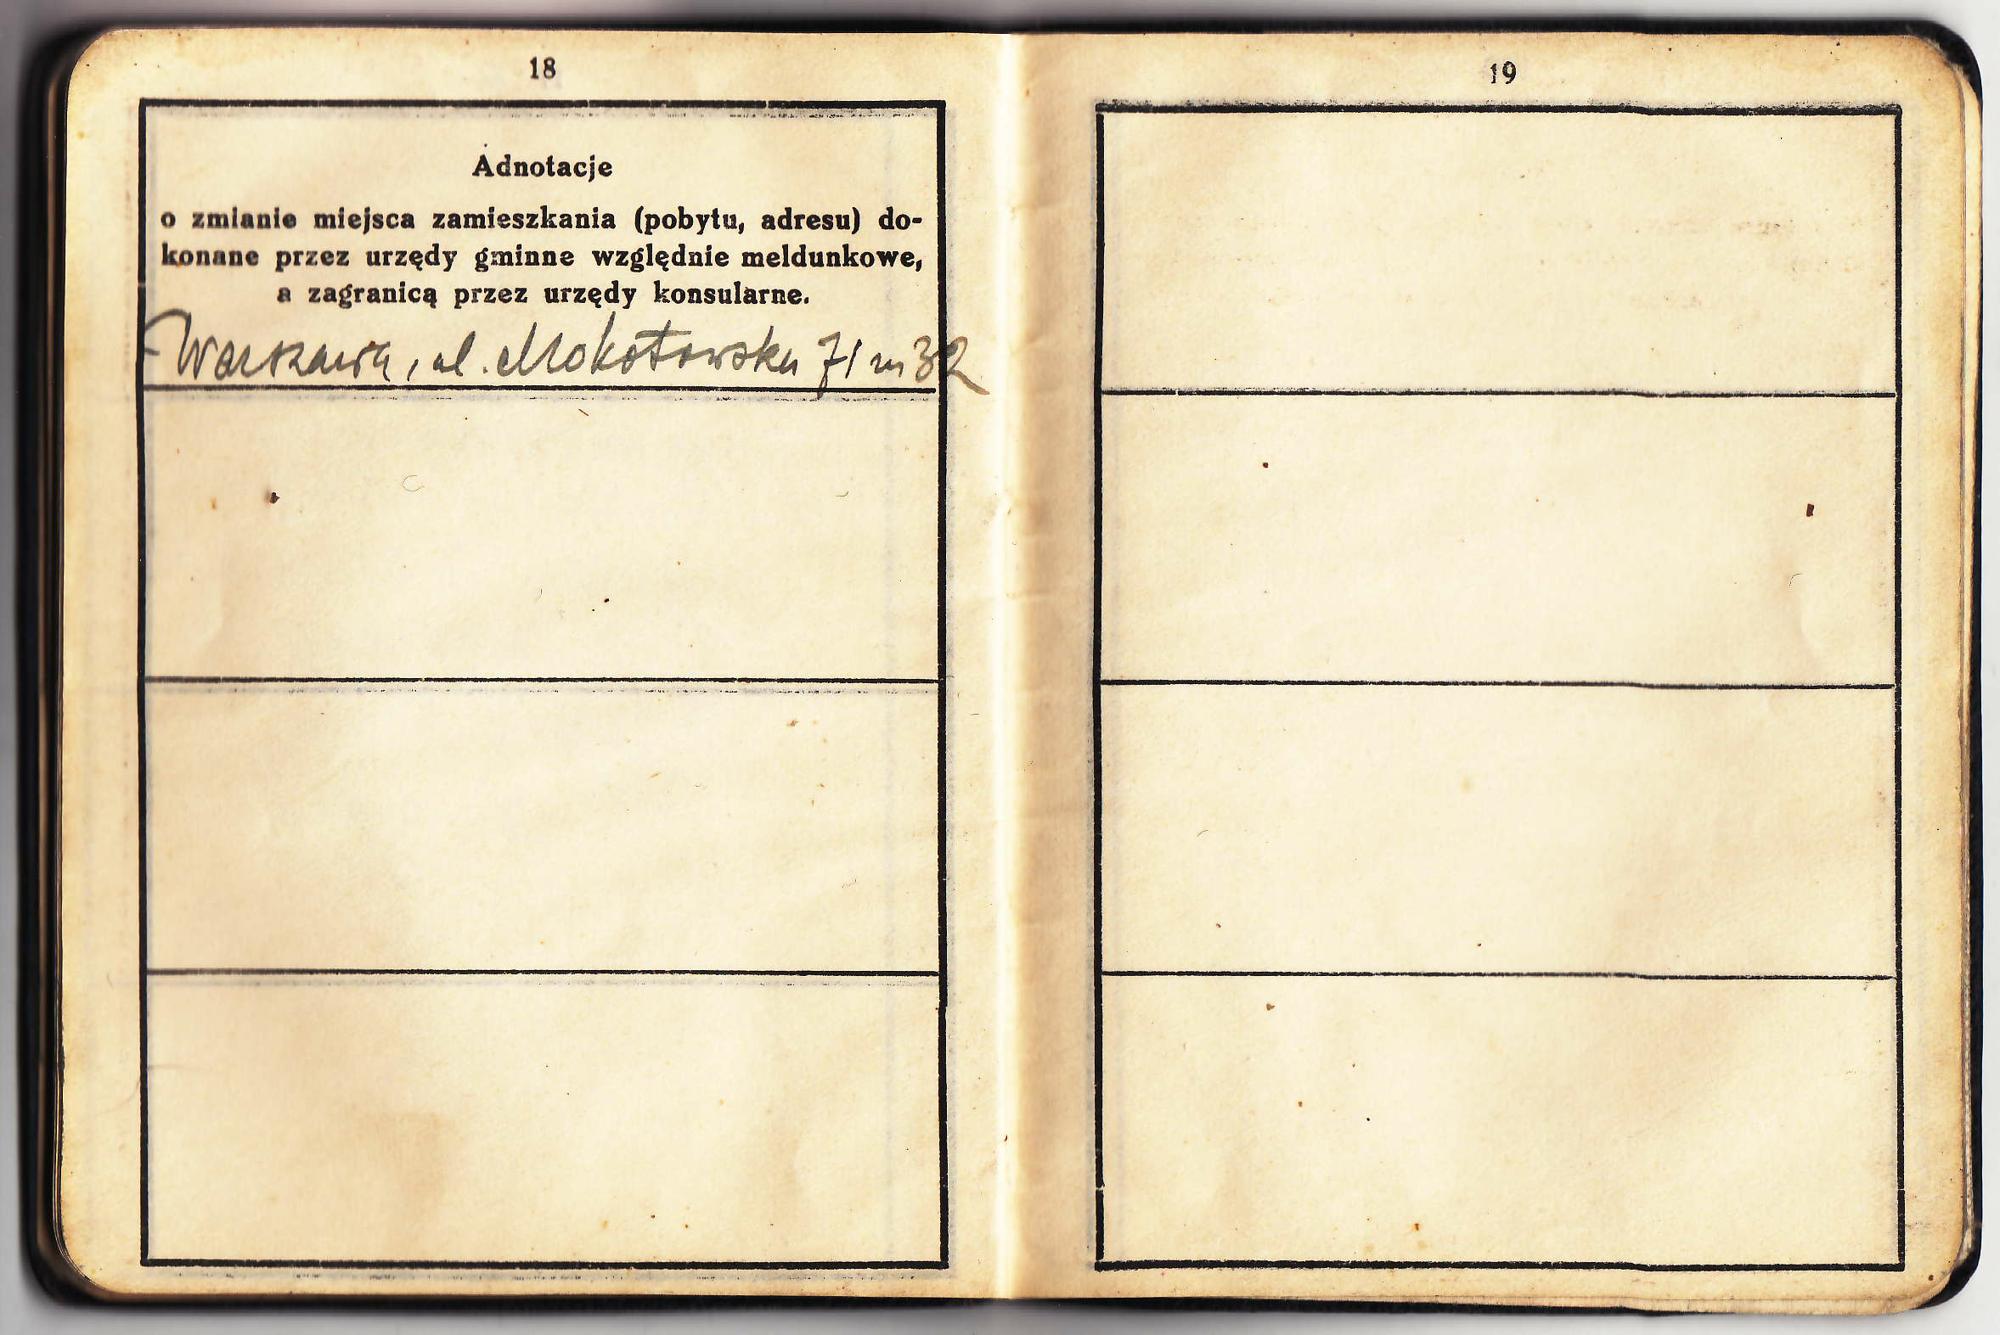 18
Adnotacje
o zmianie miejsca zamieszkania (pobytu, adresu) do-
konane przez urzędy gminne względnie meldunkowe,
a zagranicą przez urzędy konsularne.
Warszawa, ul. Mokotowska 71 m 32
19